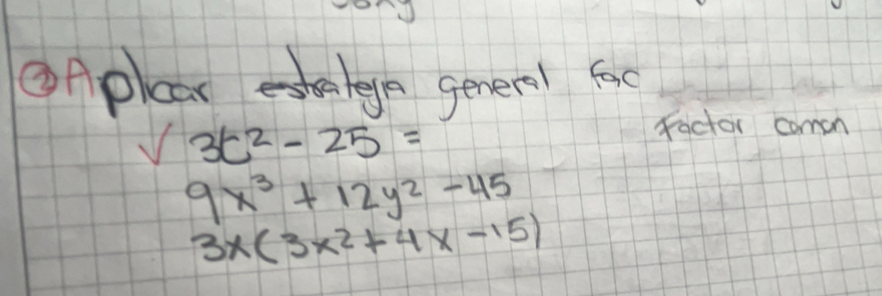 ② Aplicar estrategia general fac
Factor comon
√ 3t² - 25 =
9x³ + 12y² - 45
3x(3x² + 4x - 15)